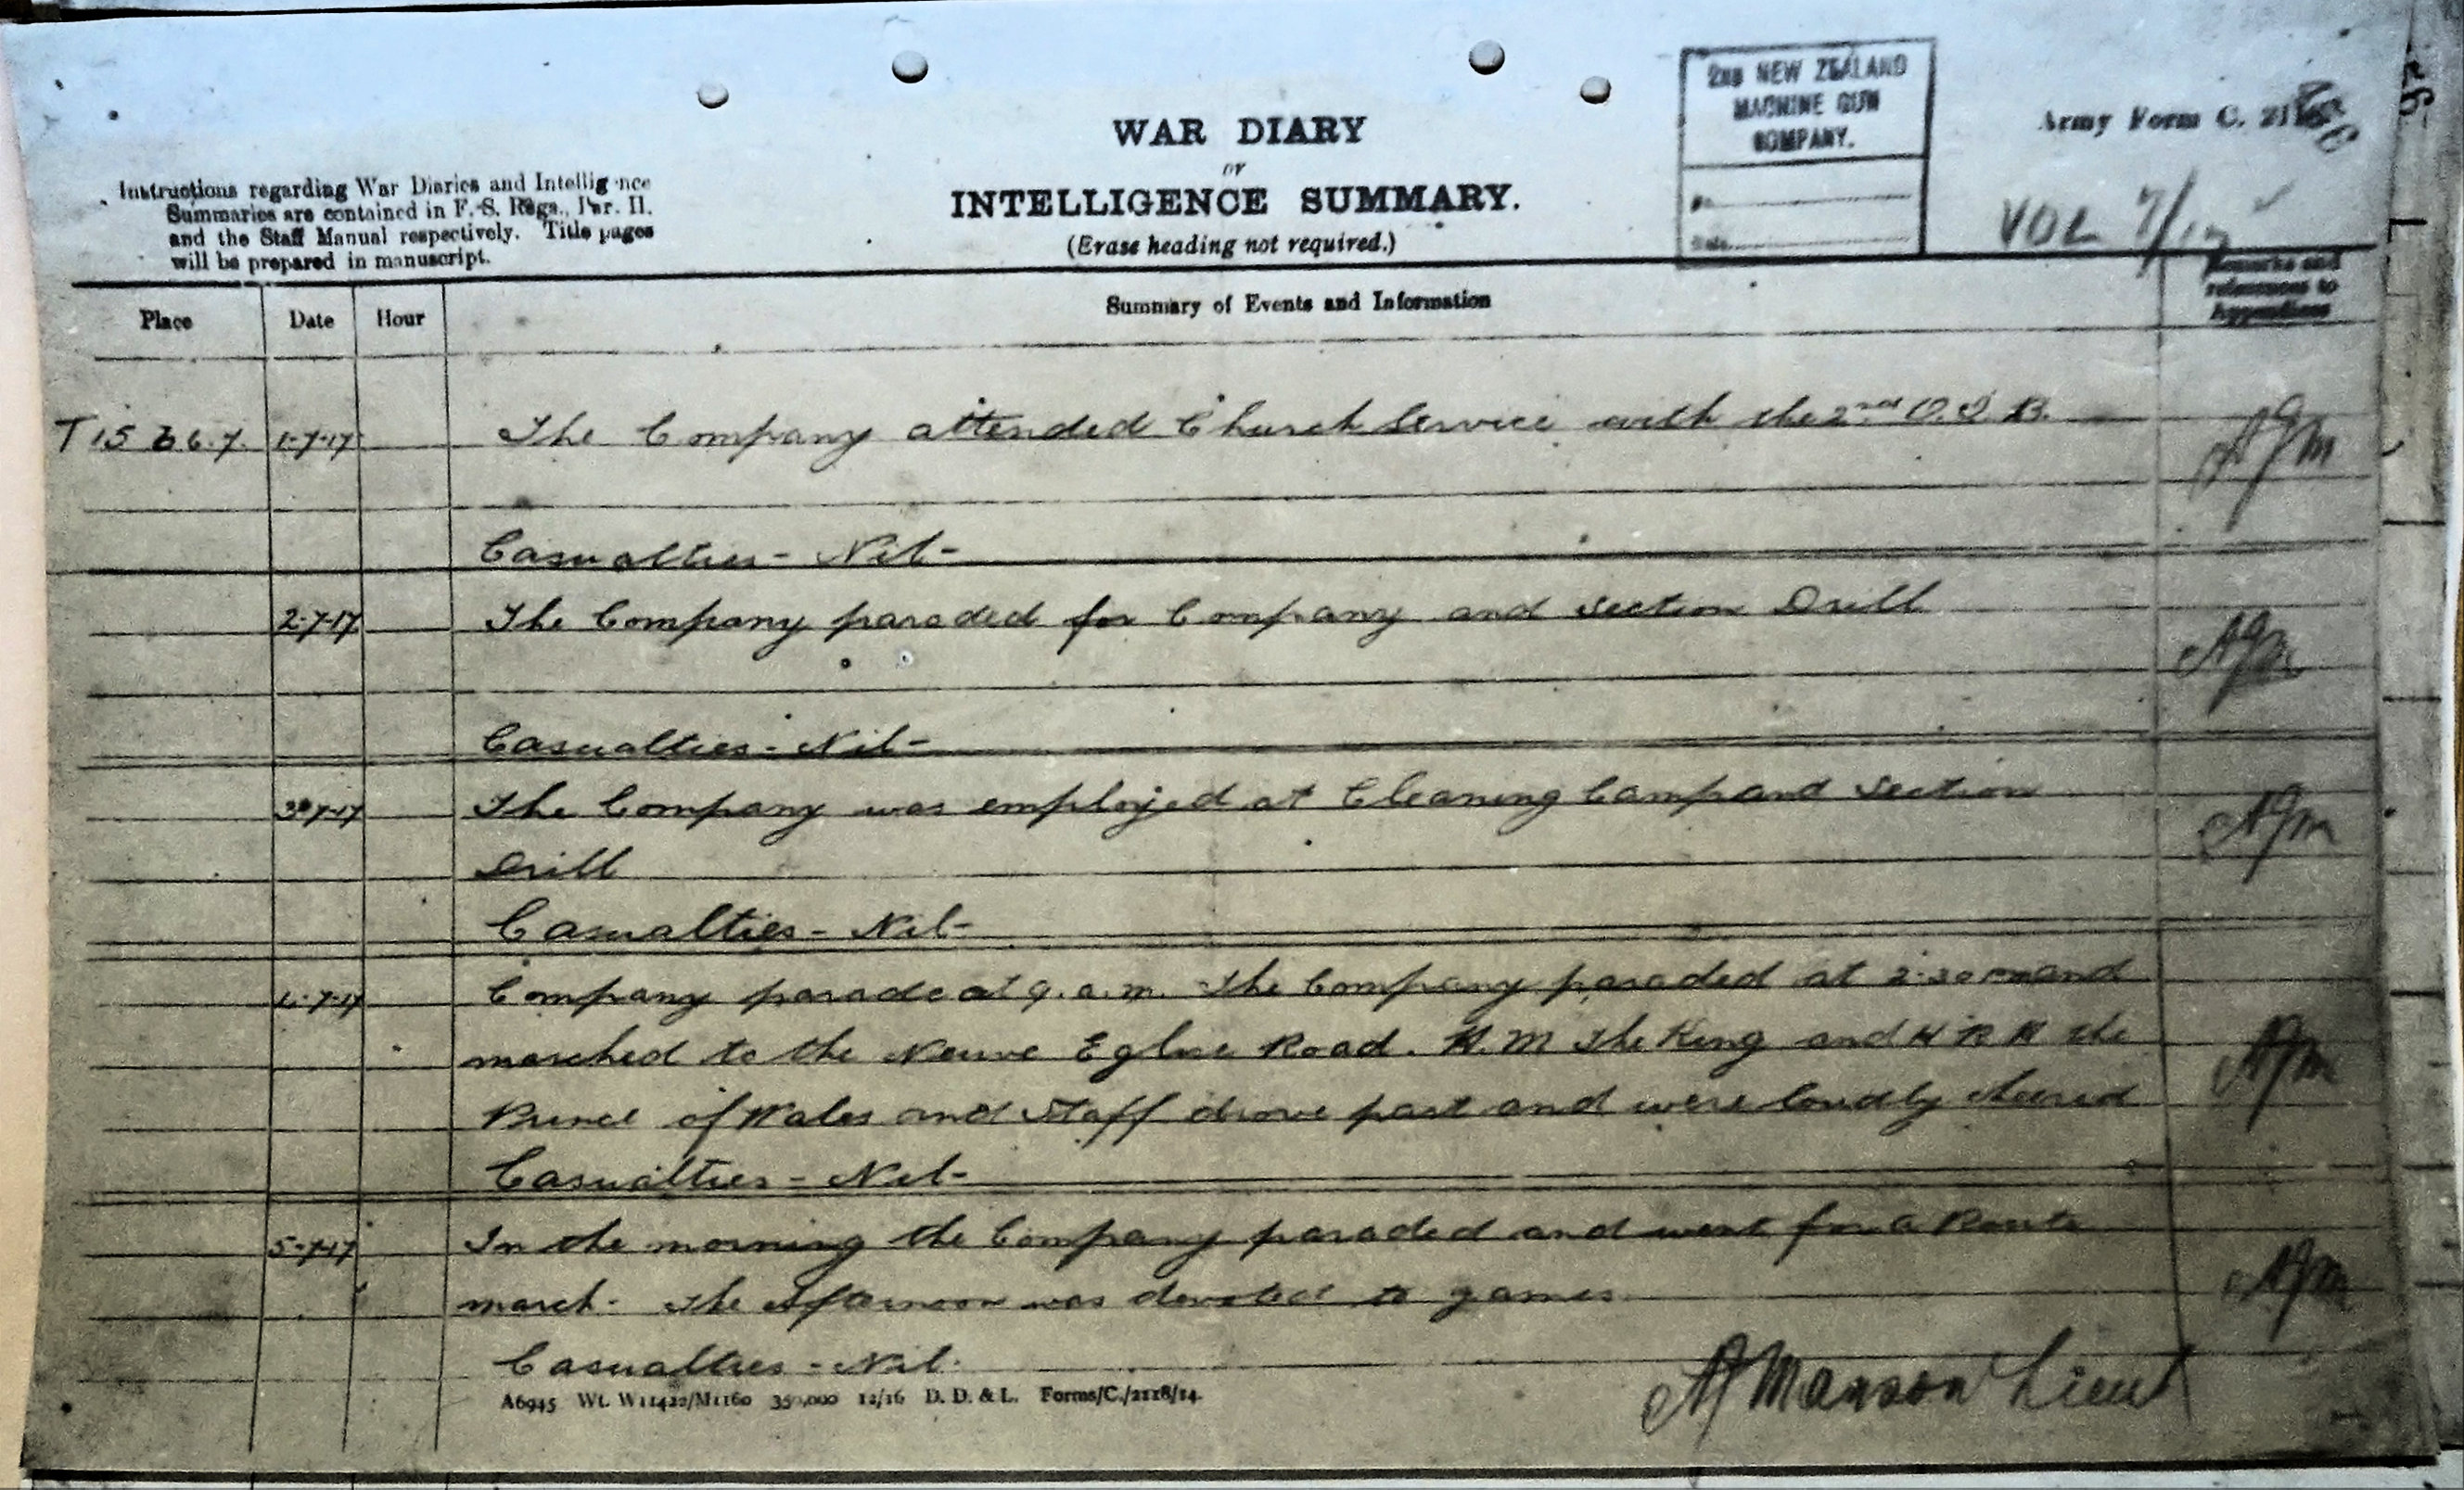 2ND NEW ZEALAND
MACHINE GUN
COMPANY.
Army Form C.
WAR DIARY
or
INTELLIGENCE SUMMARY.
(Erase heading not required.)
Instructions regarding War Diaries and Intelligence
Summaries are contained in F. S. Regs., Par. II.
and the Staff Manual respectively. Title pages
will be prepared in manuscript.
VOL 7/17
Place Date Hour Summary of Events and Information Remarks and
references to
Appendices
T 15 b 6.7. 1-7-17 The Company attended Church Service with the 2nd O.I.B. AJM
Casualties - Nil -
2-7-17 The Company paraded for Company and Section Drill AJM
Casualties - Nil -
3-7-17 The Company was employed at Cleaning Camp and Section AJM
Drill
Casualties - Nil -
4-7-17 Company parade at 9. a.m. The Company paraded at 2-30 pm and
marched to the Neuve Eglise Road. H.M The King and H R H the AJM
Prince of Wales and Staff drove past and were loudly cheered
Casualties - Nil -
5-7-17 In the morning the Company paraded and went for a Route
march. The Afternoon was devoted to games AJM
Casualties - Nil.
AJ Manson Lieut
A6945 Wt. W11422/M1160 350,000 12/16 D. D. & L. Forms/C./2118/14.